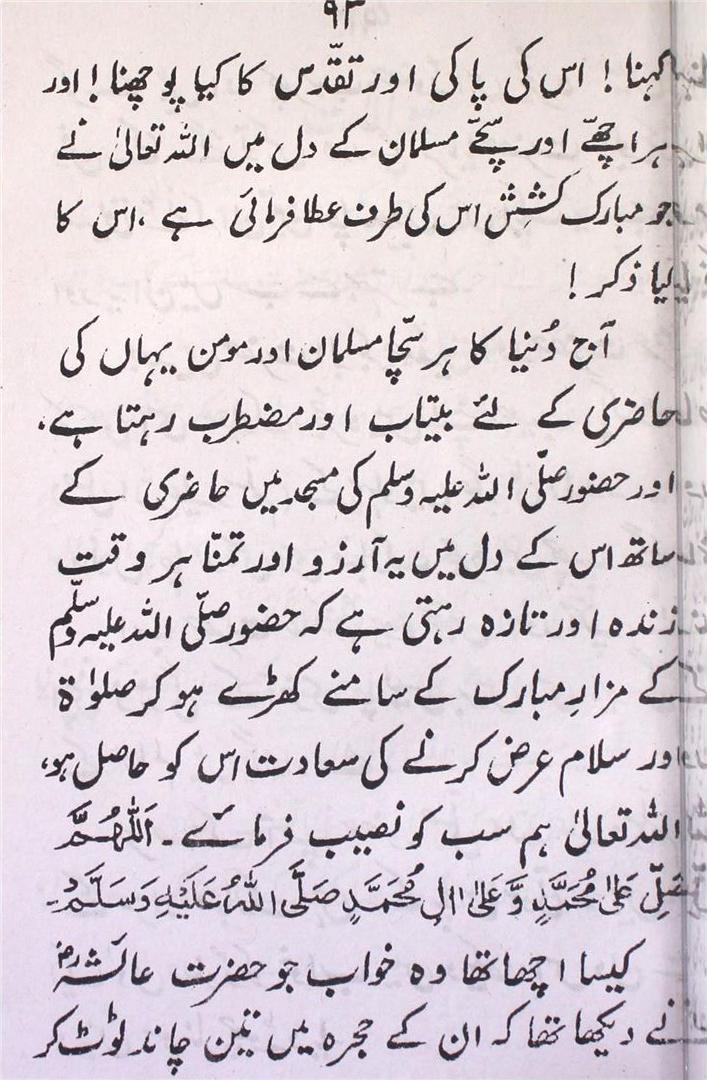 ۹۳
کہنا! اس کی پاکی اور تقدّس کا کیا پوچھنا! اور
ہر اچھّے اور سچّے مسلمان کے دل میں اللہ تعالیٰ نے
جو مبارک کشش اس کی طرف عطا فرمائی ہے، اس کا
کیا ذکر!
آج دُنیا کا ہر سچّا مسلمان اور مومن یہاں کی
حاضری کے لئے بیتاب اور مضطرب رہتا ہے،
اور حضور صلّی اللہ علیہ وسلم کی مسجد میں حاضری کے
ساتھ اس کے دل میں یہ آرزو اور تمنّا ہر وقت
زندہ اور تازہ رہتی ہے کہ حضور صلّی اللہ علیہ وسلّم
کے مزارِ مبارک کے سامنے کھڑے ہو کر صلوٰۃ
اور سلام عرض کرنے کی سعادت اس کو حاصل ہو،
اللہ تعالیٰ ہم سب کو نصیب فرمائے۔ اَللّٰھُمَّ
صَلِّ عَلیٰ مُحَمَّدٍ وَّ عَلیٰ اٰلِ مُحَمَّدٍ صَلَّی اللہُ عَلَیْہِ وَسَلَّمْ۔
کیسا اچھا تھا وہ خواب جو حضرت عائشہؓ
نے دیکھا تھا کہ ان کے حجرہ میں تین چاند ٹوٹ کر